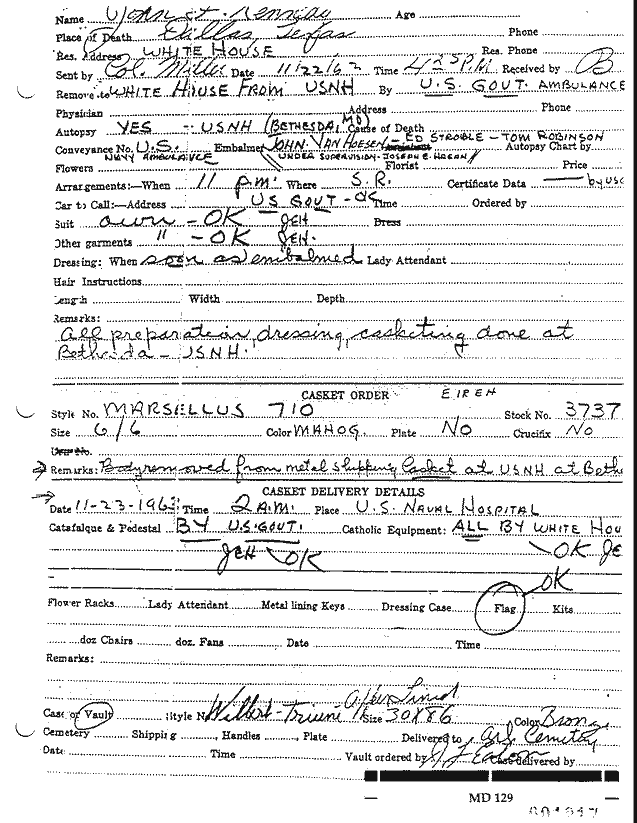 Name John F. Kennedy Age
Place of Death Dallas, Texas Phone
Res. Address WHITE HOUSE Res. Phone
Sent by Col. Miller Date 11/22/63 Time 4:25 P.M. Received by B
Remove to WHITE HOUSE FROM USNH By U.S. GOVT. AMBULANCE
Physician Address Phone
Autopsy YES - USNH (BETHESDA, MD) Cause of Death
Conveyance No. U.S. Embalmer JOHN VAN HOESEN - ED STROBLE - TOM ROBINSON Autopsy Chart by
NAVY AMBULANCE UNDER SUPERVISION - JOSEPH E. HAGAN
Flowers Florist Price
Arrangements:—When 11 P.M. Where S.R. Certificate Data by USG
Car to Call:—Address US GOVT - OK Time Ordered by
Suit own - OK JEH Press
Other garments " - OK JEH.
Dressing: When soon as embalmed Lady Attendant
Hair Instructions
Length Width Depth
Remarks:
All preparation, dressing, casketing done at
Bethesda - USNH.
CASKET ORDER EIREH
Style No. MARSELLUS 710 Stock No. 3737
Size 6/6 Color MAHOG. Plate No Crucifix No
Use No.
Remarks: Body removed from metal shipping casket at USNH at Beth
CASKET DELIVERY DETAILS
Date 11-23-1963 Time 2 A.M. Place U.S. NAVAL HOSPITAL
Catafalque & Pedestal BY U.S. GOVT. Catholic Equipment: ALL BY WHITE HOU
JEH OK OK JE
OK
Flower Racks Lady Attendant Metal lining Keys Dressing Case Flag Kits
doz Chairs doz. Fans Date Time
Remarks:
Case or Vault Style No. Wilbert-Triune Size 30X86 Color Bronz
Cemetery Shipping Handles Plate Delivered to Arl. Cemetery
Date Time Vault ordered by Case delivered by
MD 129